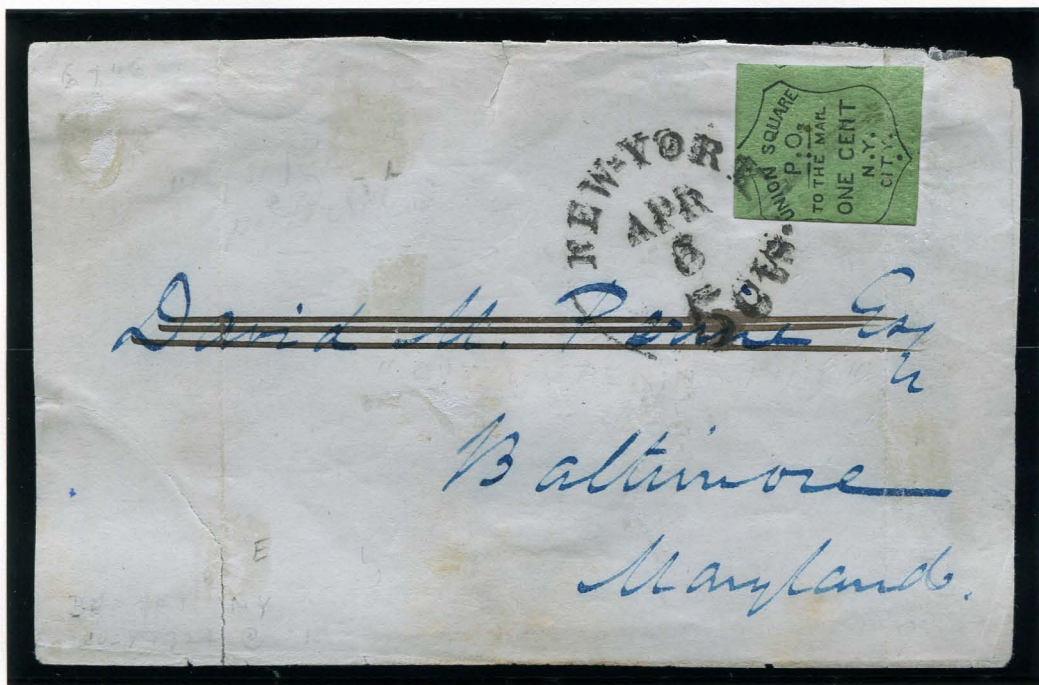 UNION SQUARE
P.O.
TO THE MAIL
ONE CENT
N.Y.
CITY.
NEW-YOR
APR
6
5 CTS.
David M. Perine Esq
Baltimore
Maryland.
E